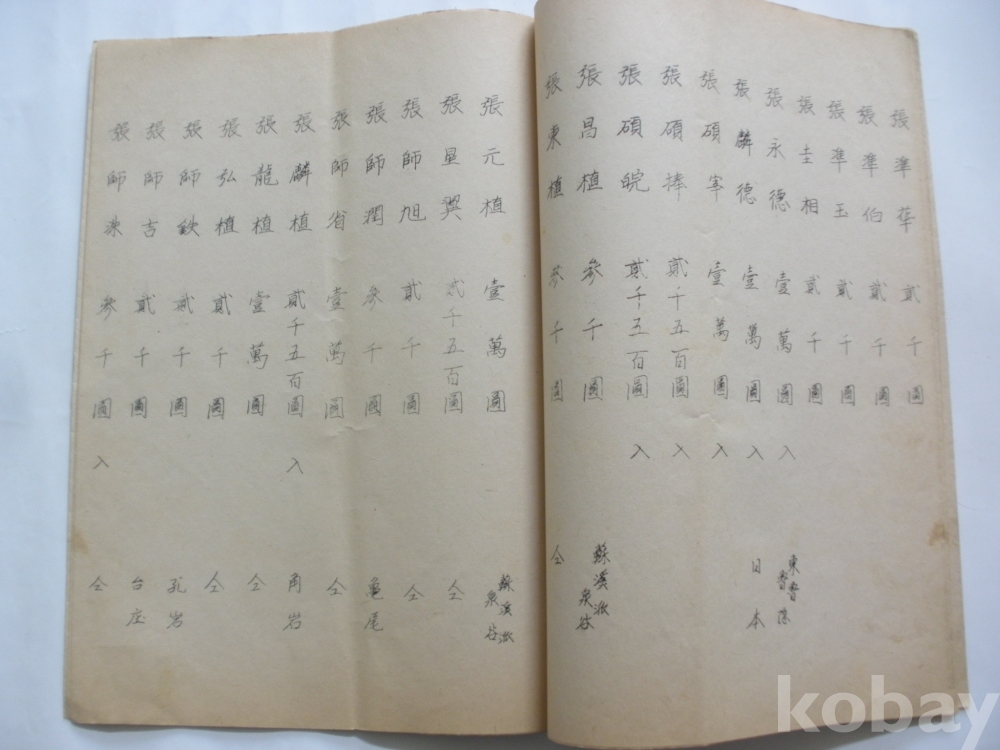 張準華 貳千圓
張準伯 貳千圓
張準玉 貳千圓
張圭相 貳千圓
張永德 壹萬圓 入 東魯
張麟德 壹萬圓 入 日本
張碩宰 壹萬圓 入
張碩捧 貳千五百圓 入
張碩皖 貳千五百圓 入
張昌植 參千圓 蘇溪派 泉谷
張東植 參千圓 仝
張元植 壹萬圓 蘇溪派 泉谷
張星翼 貳千五百圓 仝
張師旭 貳千圓 仝
張師潤 參千圓 龜尾
張師省 壹萬圓 仝
張麟植 貳千五百圓 入 角岩
張龍植 壹萬圓 仝
張弘植 貳千圓 仝
張師 貳千圓 孔岩
張師吉 貳千圓 台庄
張師洙 參千圓 入 仝
kobay